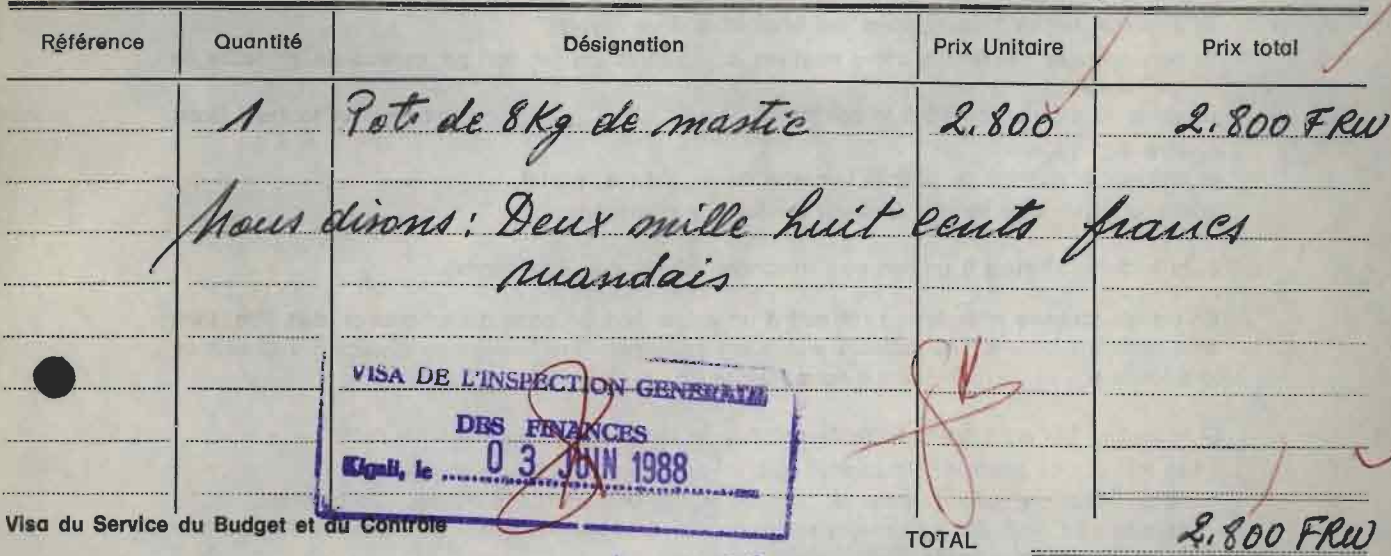 Référence Quantité Désignation Prix Unitaire Prix total
1 Pot de 8Kg de mastic 2.800 2.800 FRW
Nous disons: Deux mille huit cents francs
rwandais
VISA DE L'INSPECTION GENERALE
DES FINANCES
Kigali, le 03 JUIN 1988
Visa du Service du Budget et du Contrôle TOTAL 2.800 FRW